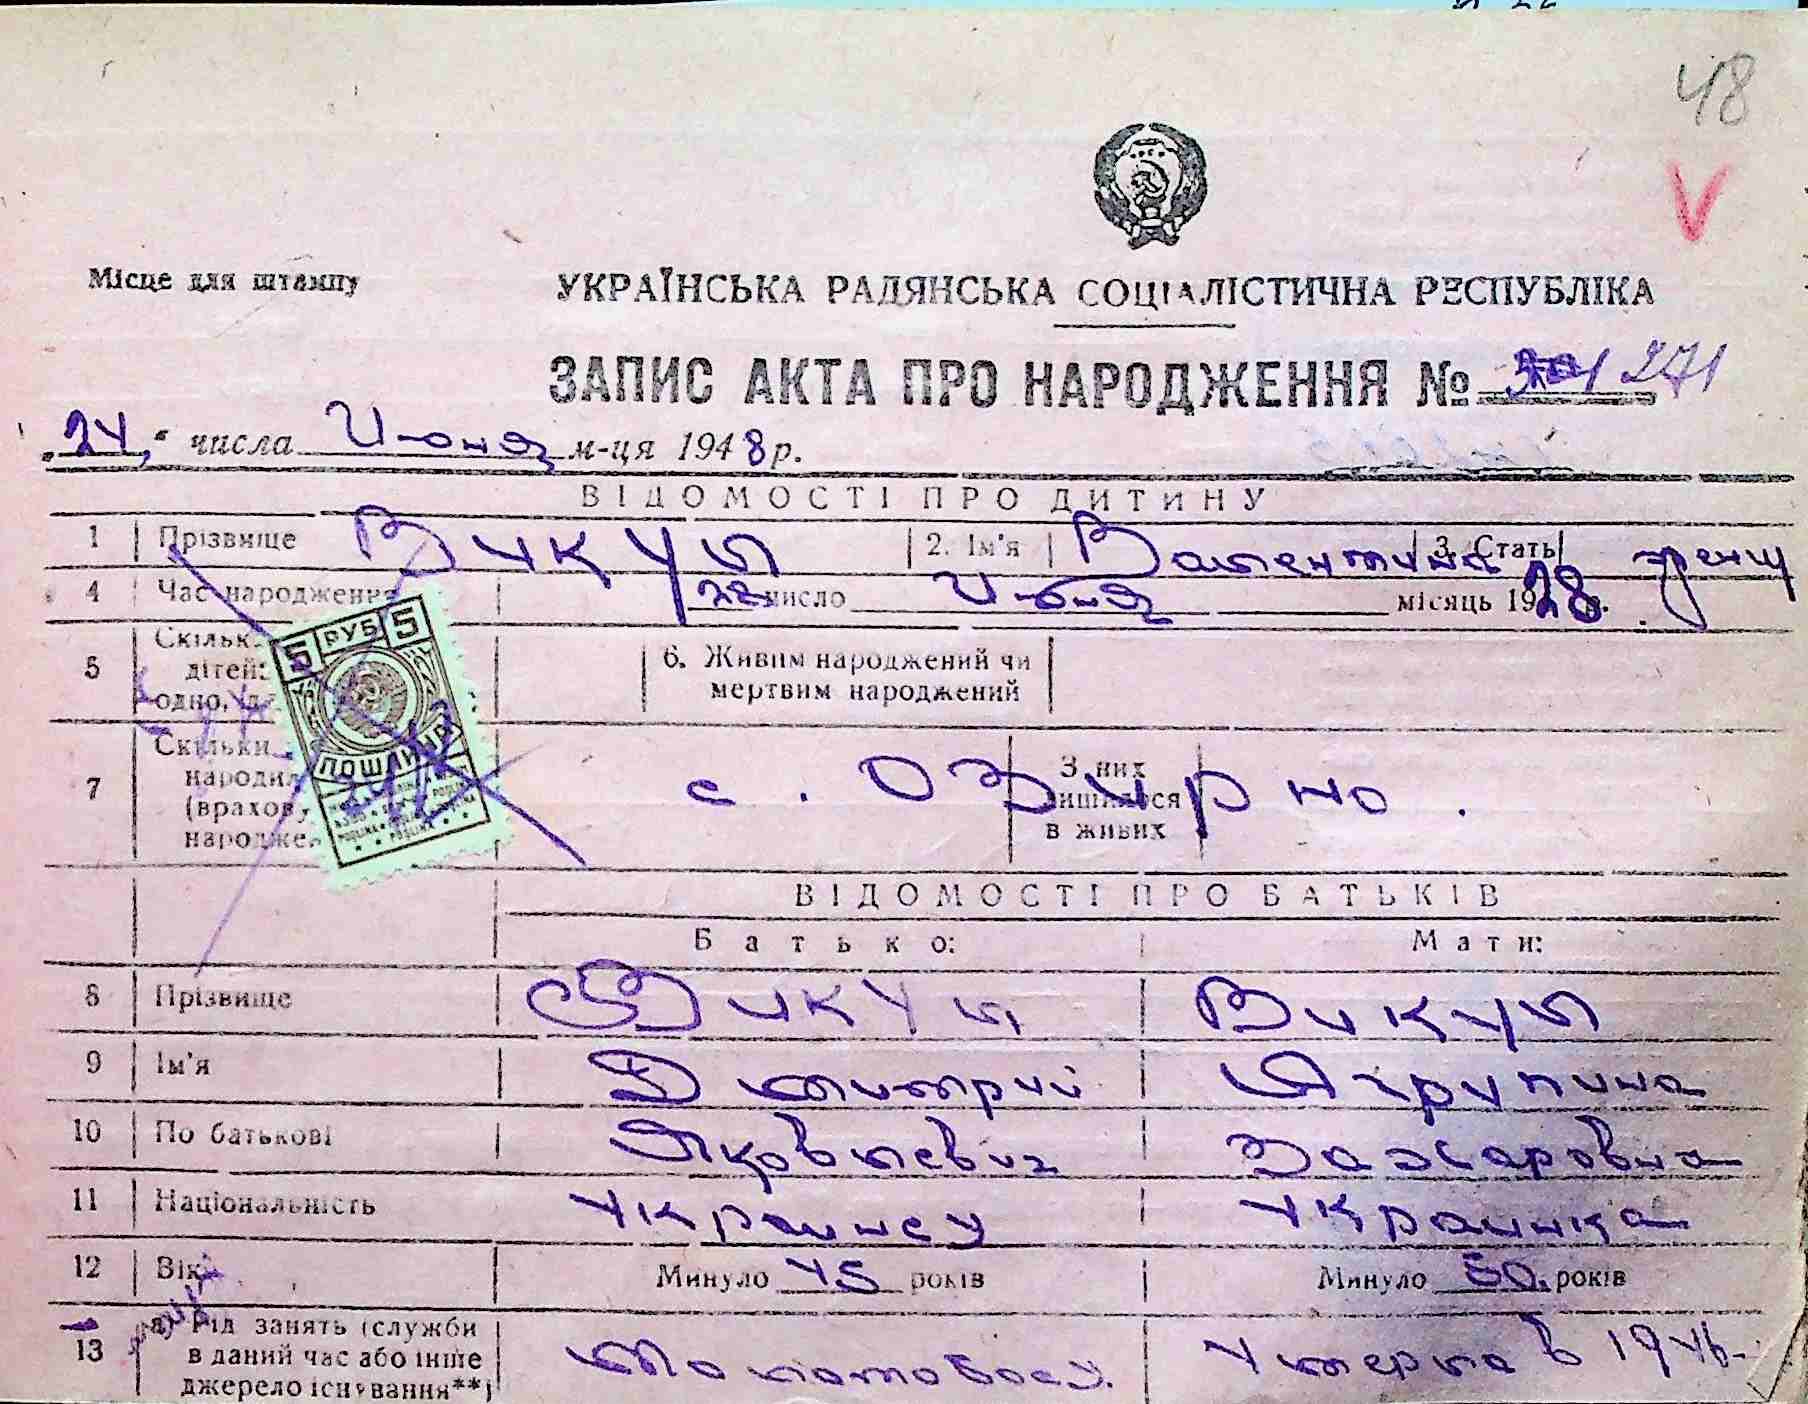 48
V
Місце для штампу
УКРАЇНСЬКА РАДЯНСЬКА СОЦІАЛІСТИЧНА РЕСПУБЛІКА
ЗАПИС АКТА ПРО НАРОДЖЕННЯ № 271
„24“ числа Июня м-ця 1948 р.
ВІДОМОСТІ ПРО ДИТИНУ
1 Прізвище Викул 2. Ім'я Валентина 3. Стать женщ
4 Час народження 22 число Июня місяць 1928 р.
5 Скільк дітей: одно, 6. Живим народжений чи мертвим народжений
7 Скільки народил (врахову народже с. Озирно. З них лишилося в живих
5 РУБ 5
ПОШЛИНА
ВІДОМОСТІ ПРО БАТЬКІВ
Батько: Мати:
8 Прізвище Викул Викул
9 Ім'я Дмитрий Агрупина
10 По батькові Яковлевич Захаровна
11 Національність украинец украинка
12 Вік Минуло 45 років Минуло 50. років
13 а) Рід занять (служби в даний час або інше джерело існування**) умерла в 1946-